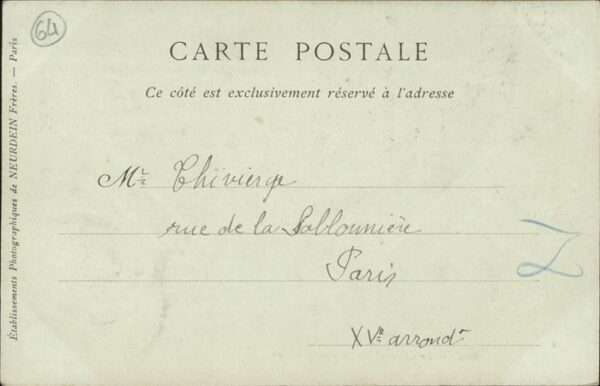 64
CARTE POSTALE
Ce côté est exclusivement réservé à l'adresse
Mr Thivierge
rue de la Sablonnière
Paris
XVe arrondt
Z
Établissements Photographiques de NEURDEIN Frères. — Paris